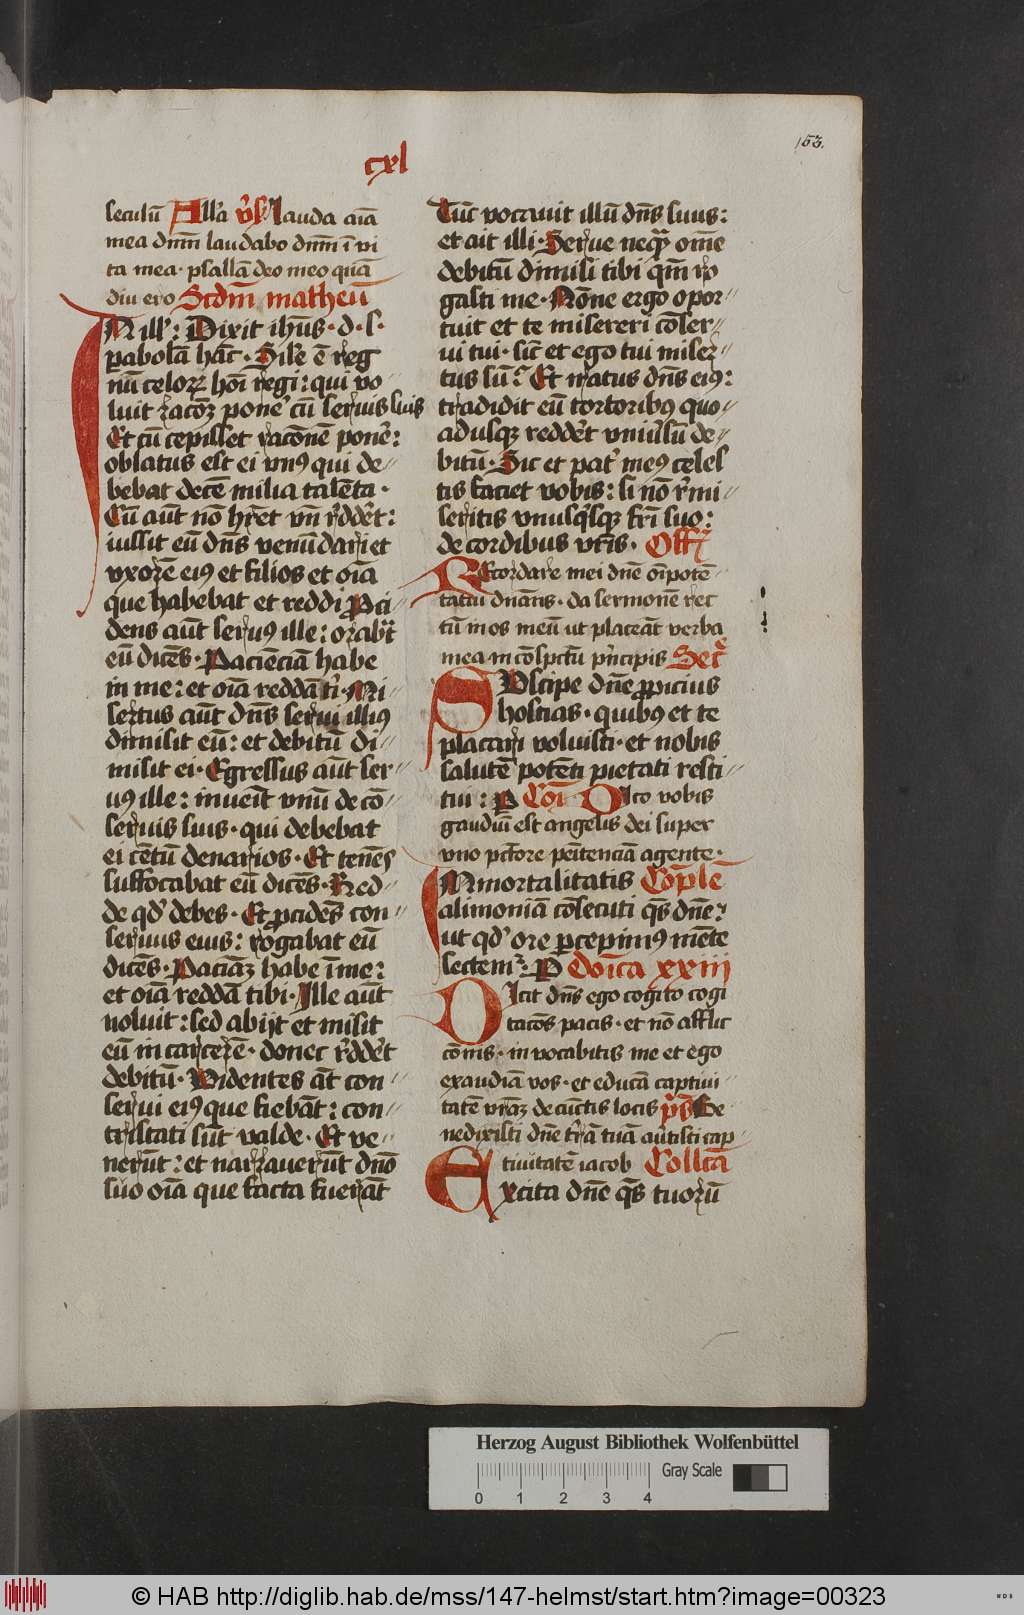 153.
cxl
seculū Alla v̓s Lauda aīa
mea dnm̄ laudabo dnm̄ ī vi
ta mea· psallā deo meo quā
diu ero Scdm̄ matheū
IN ill̓: Dixit ih̄us· d· s·
pabolā hāc· Sil̓e ē reg
nū celoꝝ hoī regi: qui vo
luit racōꝫ pone̓ cū seruis suis
Et cū cepisset racōnē pone̓:
oblatus est ei vnꝰ qui de⸗
bebat decē milia talēta·
Cū aūt nō hr̄et vn̄ r̓dde̓t:
iussit eū dn̄s venūdari et
vxorē eiꝰ et filios et oīa
que habebat et reddi Pci
dens aūt seruꝰ ille: orabat
eū dicēs· Paciēciā habe
in me: et oīa reddā t̄i· Mi⸗
sertus aūt dn̄s serui illiꝰ
dimisit eū: et debitū di⸗
misit ei· Egressus aūt ser⸗
uꝰ ille: inuēit vnū de cō⸗
seruis suis· qui debebat
ei cētū denarios· Et tenēs
suffocabat eū dicēs· Red⸗
de qd̓ debes· Et ꝓcidēs con⸗
seruus eius: rogabat eū
dicēs· Paciāꝫ habe ī me:
et oīa reddā tibi· Ille aūt
noluit: sed abijt et misit
eū in carcerē· donec r̓dde̓t
debitū· Videntes āt con⸗
serui eiꝰ que fiebāt: con⸗
tristati sūt valde· Et ve⸗
nerūt: et narrauerūt dn̄o
suo oīa que facta fuerāt
Tūc vocauit illū dn̄s suus:
et ait illi· Serue neqꝫ om̄e
debitū dimisi tibi qm̄ ro
gasti me· Nōne ergo opor⸗
tuit et te misereri cōser⸗
ui tui· sic̄ et ego tui miser⸗
tus sū: Et iratus dn̄s eiꝰ:
tradidit eū tortoribꝰ quo⸗
adusqꝫ redde̓t vniu̓sū de⸗
bitū· Sic et pat̓ meꝰ celes
tis faciet vobis: si nō r̓mi⸗
seritis vnusqsqꝫ fr̄i suo:
de cordibus vr̄is· Offr̄
REcordare mei dn̄e oīpotē⸗
tatui dnāns· da sermonē rec
tū in os meū ut placeāt verba
mea in cōspc̄tu pn̓cipis Secr̄
SVscipe dn̄e ꝓpicius
hostias· quibꝰ et te
placari voluisti· et nobis
salutē potēti pietati resti⸗
tui: P Cōi Dico vobis
gaudiū est angelis dei super
vno pc̄tore pēitenciā agente·
INmortalitatis Cōplē
alimoniā cōsecuti qs̄ dn̄e:
ut qd̓ ore ꝑcepimꝰ mēte
sectem̓· P Doīca xxiij
DIcit dn̄s ego cogito cogi
tacōs pacis· et nō afflic
cōnis· in vocabitis me et ego
exaudiā vos· et educā captiui⸗
tatē vrāꝫ de cūctis locis ps̄ Be⸗
nedixisti dn̄e tr̄ā tuā au̓tisti cap⸗
tiuitatē iacob Collcā
Excita dn̄e qs̄ tuorū
Herzog August Bibliothek Wolfenbüttel
Gray Scale
0 1 2 3 4
© HAB http://diglib.hab.de/mss/147-helmst/start.htm?image=00323